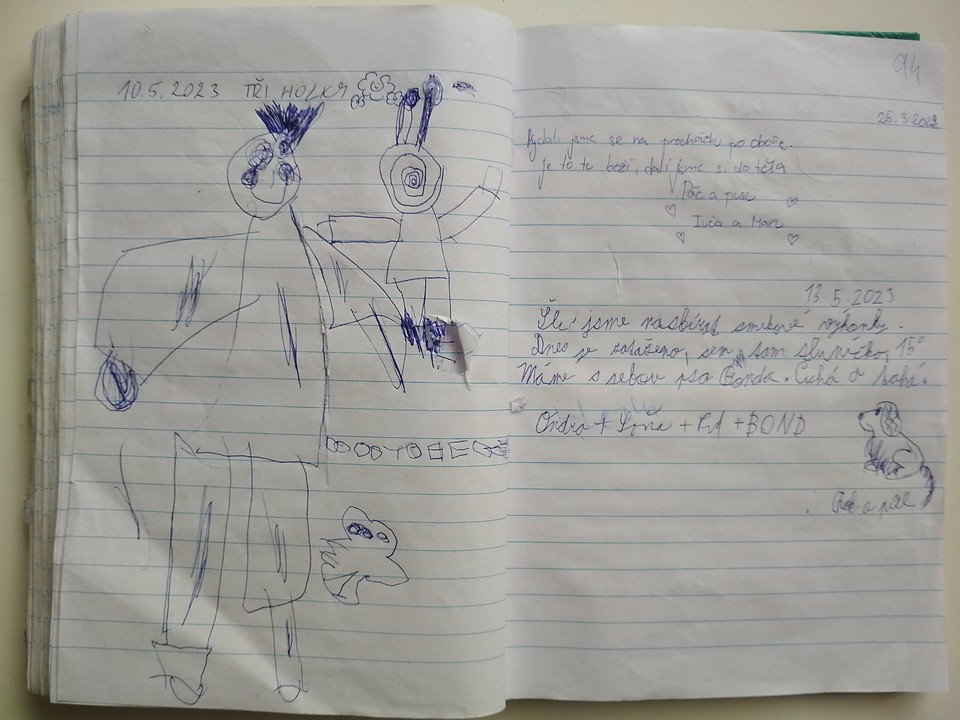 10.5.2023 TŘI HOLKY
94
25.3.2023
Vydali jsme se na procházku po oboře.
Je to tu boží, dali jsme si do těla
Pác a pusc
Ivča a Man
13.5.2023
Šli jsme nasbírat smrkové výhonky.
Dnes je zataženo, sem tam sluníčko, 15°
Máme s sebou psa Bonda. Čichá a
Ondra + Soňa + + BOND